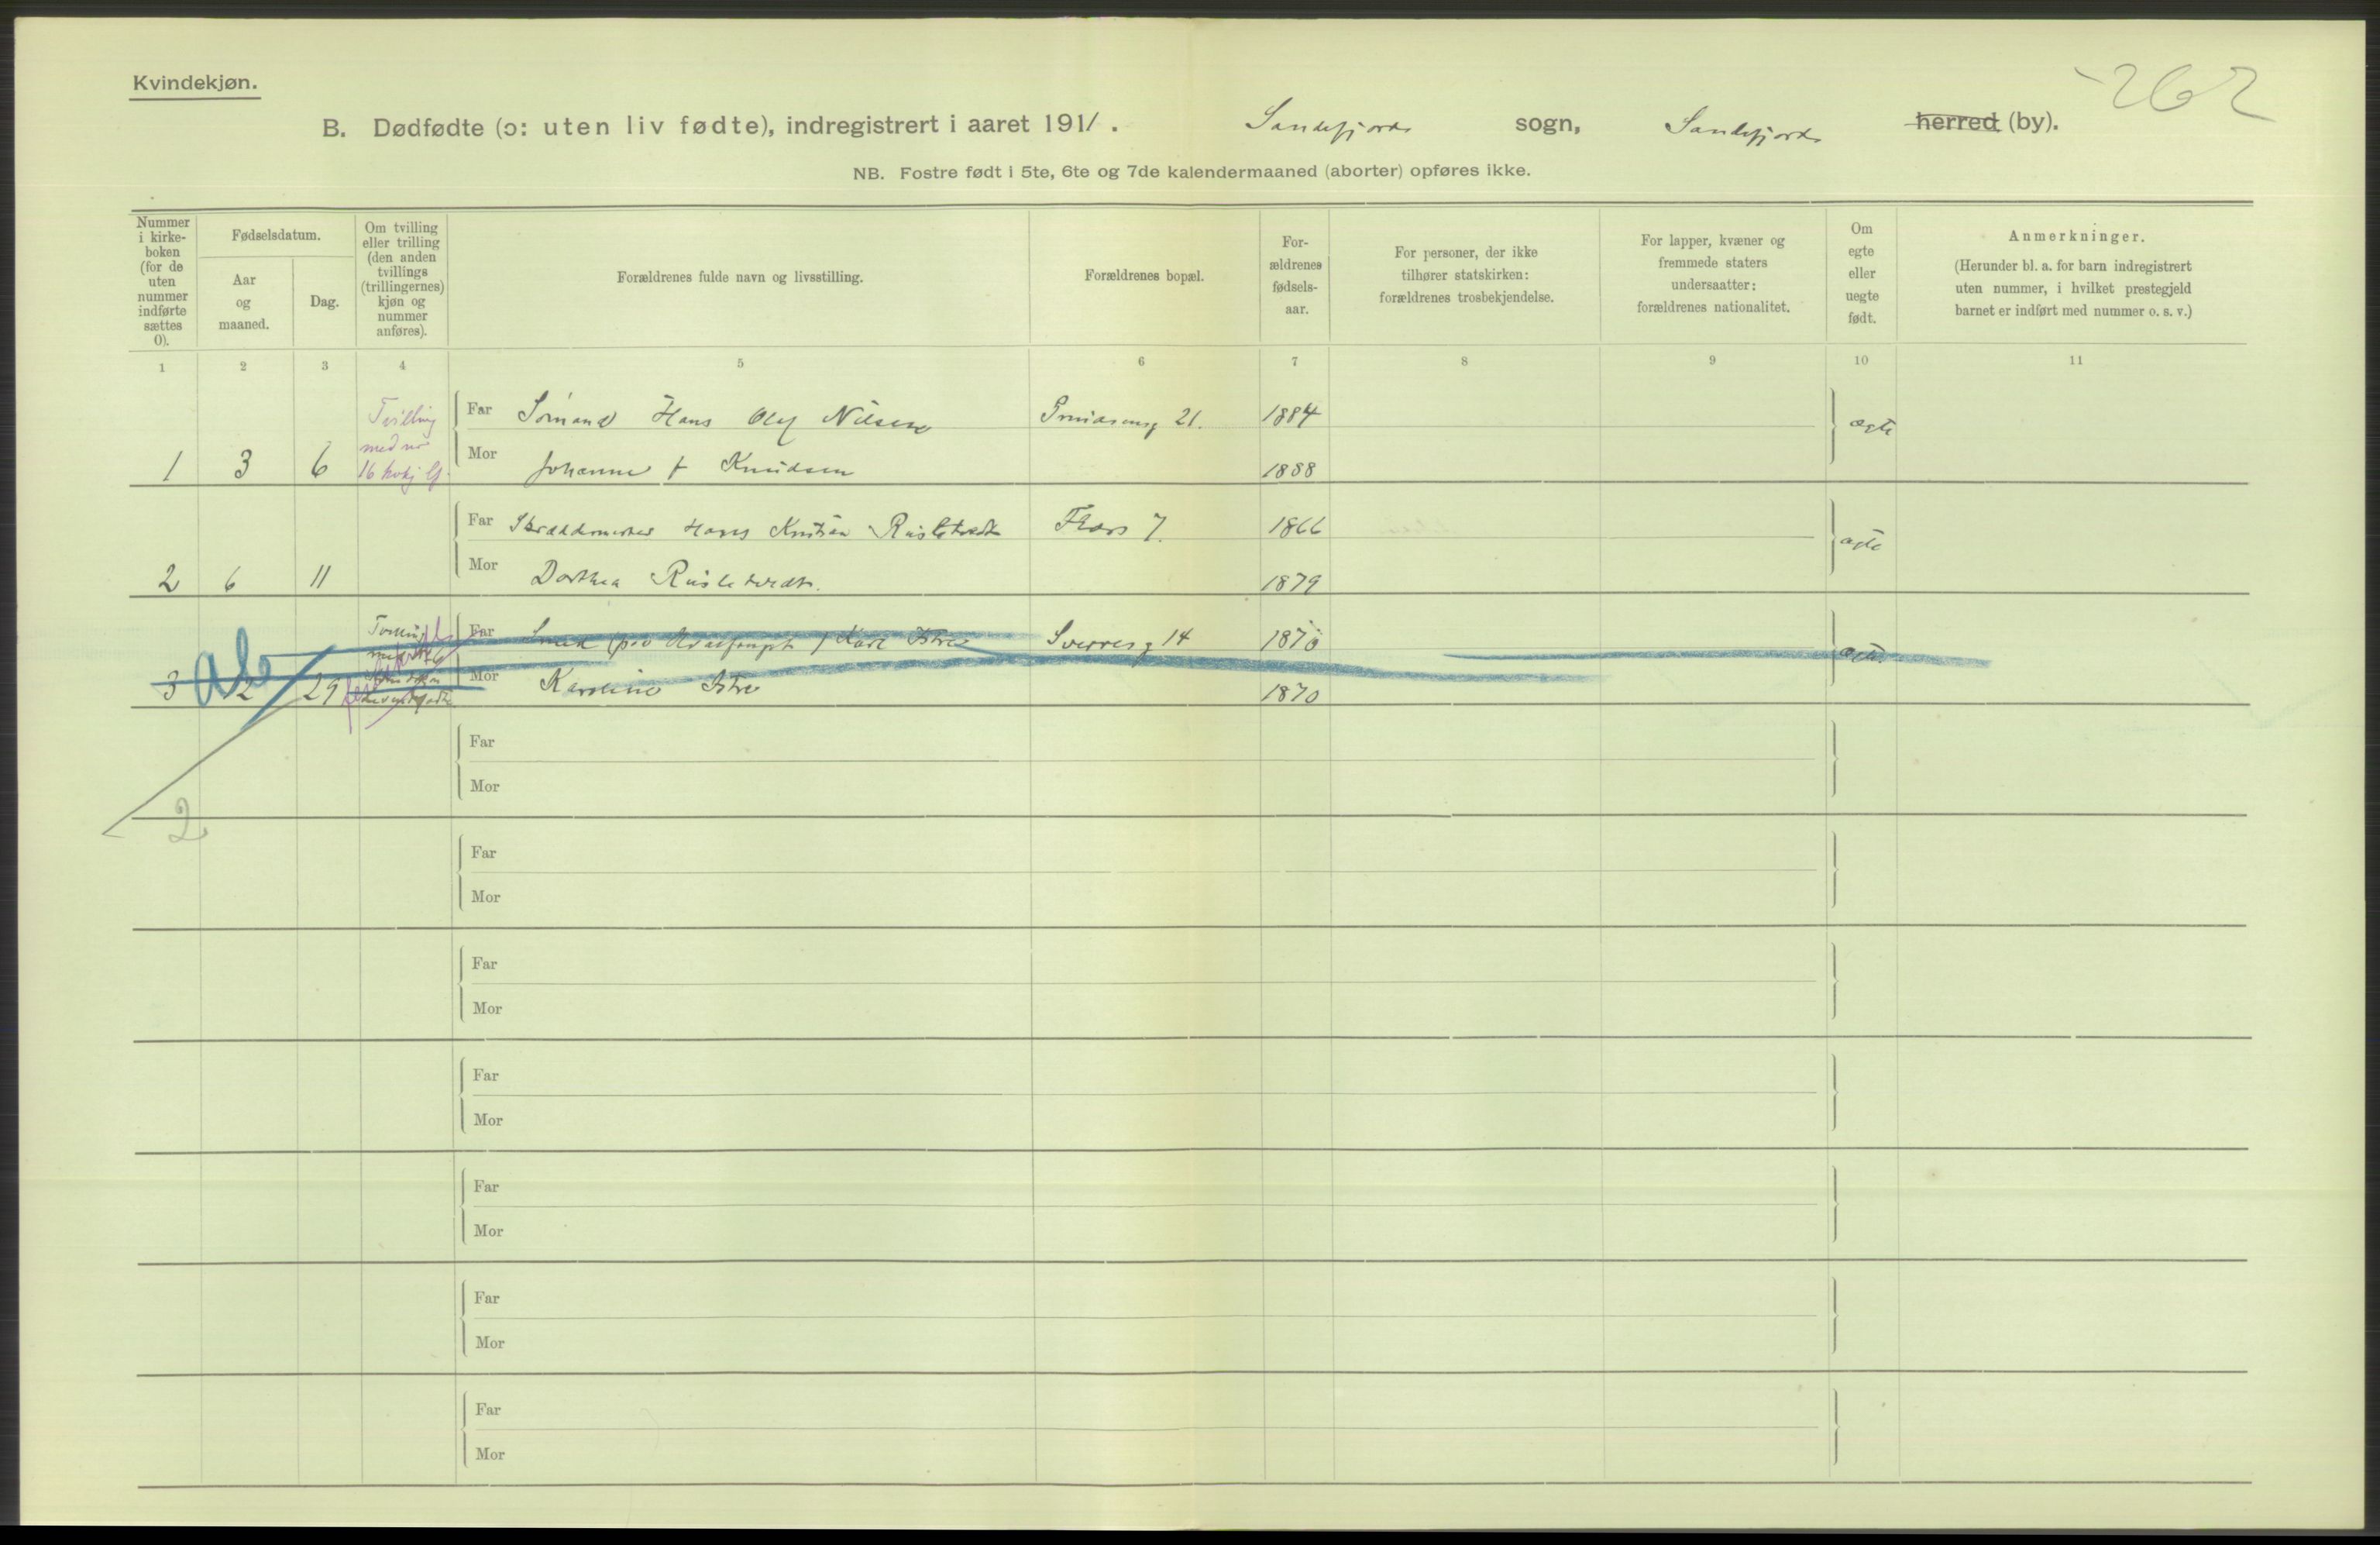 Kvindekjøn.
262
B. Dødfødte (ɔ: uten liv fødte), indregistrert i aaret 1911. Sandefjords sogn, Sandefjords herred (by).
NB. Fostre født i 5te, 6te og 7de kalendermaaned (aborter) opføres ikke.
Nummer
i kirke-
boken
(for de
uten
nummer
indførte
sættes
0).
Fødselsdatum.
Aar
og
maaned.
Dag.
Om tvilling
eller trilling
(den anden
tvillings
(trillingernes)
kjøn og
nummer
anføres).
Forældrenes fulde navn og livsstilling.
Forældrenes bopæl.
For-
ældrenes
fødsels-
aar.
For personer, der ikke
tilhører statskirken:
forældrenes trosbekjendelse.
For lapper, kvæner og
fremmede staters
undersaatter:
forældrenes nationalitet.
Om
egte
eller
uegte
født.
Anmerkninger.
(Herunder bl. a. for barn indregistrert
uten nummer, i hvilket prestegjeld
barnet er indført med nummer o. s. v.)
1 2 3 4 5 6 7 8 9 10 11
Tvilling
med no
16
Far Sømand Hans Olaf Nilsen 21. 1884 ægte
1 3 6 Mor Johanne f Knudsen 1888
Far Hans Kristian 7. 1866 ægte
2 6 11 Mor Dorthea 1879
Far Smed Karl Istre Sverresg 14 1870 ægte
3 2 29 Mor Karoline Istre 1870
Far
Mor
2
Far
Mor
Far
Mor
Far
Mor
Far
Mor
Far
Mor
Far
Mor